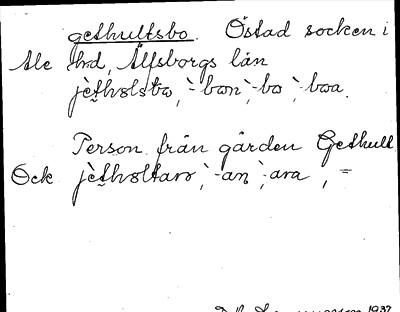 gethultsbo. Östad socken i
Ale hrd, Älfsborgs län
jèthɷlsbo, `-bon, `-bo, `-boa.
Person från gården Gethult
Ock jèthɷltaro, `-an, `-ara, =
1937